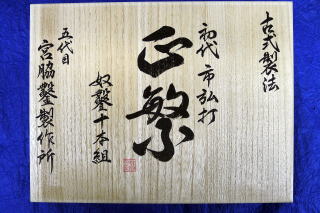 古式製法
初代 市弘打
正繁
奴鑿十本組
五代目
宮脇鑿製作所